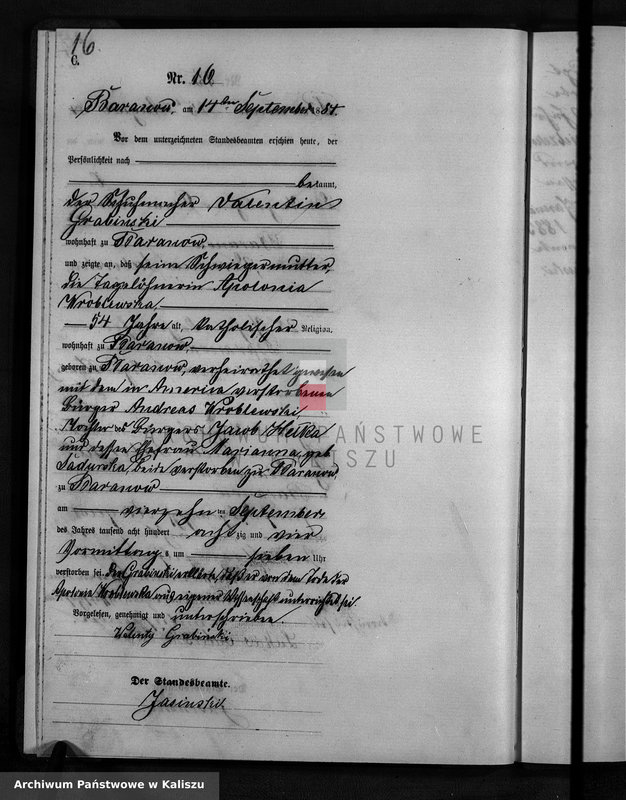 16
C.
Nr. 16.
Baranow, am 14ten September 1884.
Vor dem unterzeichneten Standesbeamten erschien heute, der
Persönlichkeit nach
bekannt,
der Schuhmacher Valentin
Grabinski
wohnhaft zu Baranow,
und zeigte an, daß seine Schwiegermutter,
die Tagelöhnerin Apolonia
Wroblewska,
54 Jahre alt, katholischer Religion,
wohnhaft zu Baranow,
geboren zu Baranow, verheirathet gewesen
mit dem in America verstorbenen
Bürger Andreas Wroblewski,
Tochter des Bürgers Jacob
und dessen Ehefrau Marianna, geb.
beide verstorben zu Baranow,
zu Baranow
am vierzehn ten September
des Jahres tausend acht hundert achtzig und vier
Vormittags um sieben Uhr
verstorben sei. Der Grabinski erklärte, daß er von dem Tode der
Apolonia Wroblewska aus eigener Wissenschaft unterrichtet sei.
Vorgelesen, genehmigt und unterschrieben.
Walenty Grabinski
Der Standesbeamte.
Jasinski
ARCHIWUM PAŃSTWOWE
W KALISZU
Archiwum Państwowe w Kaliszu